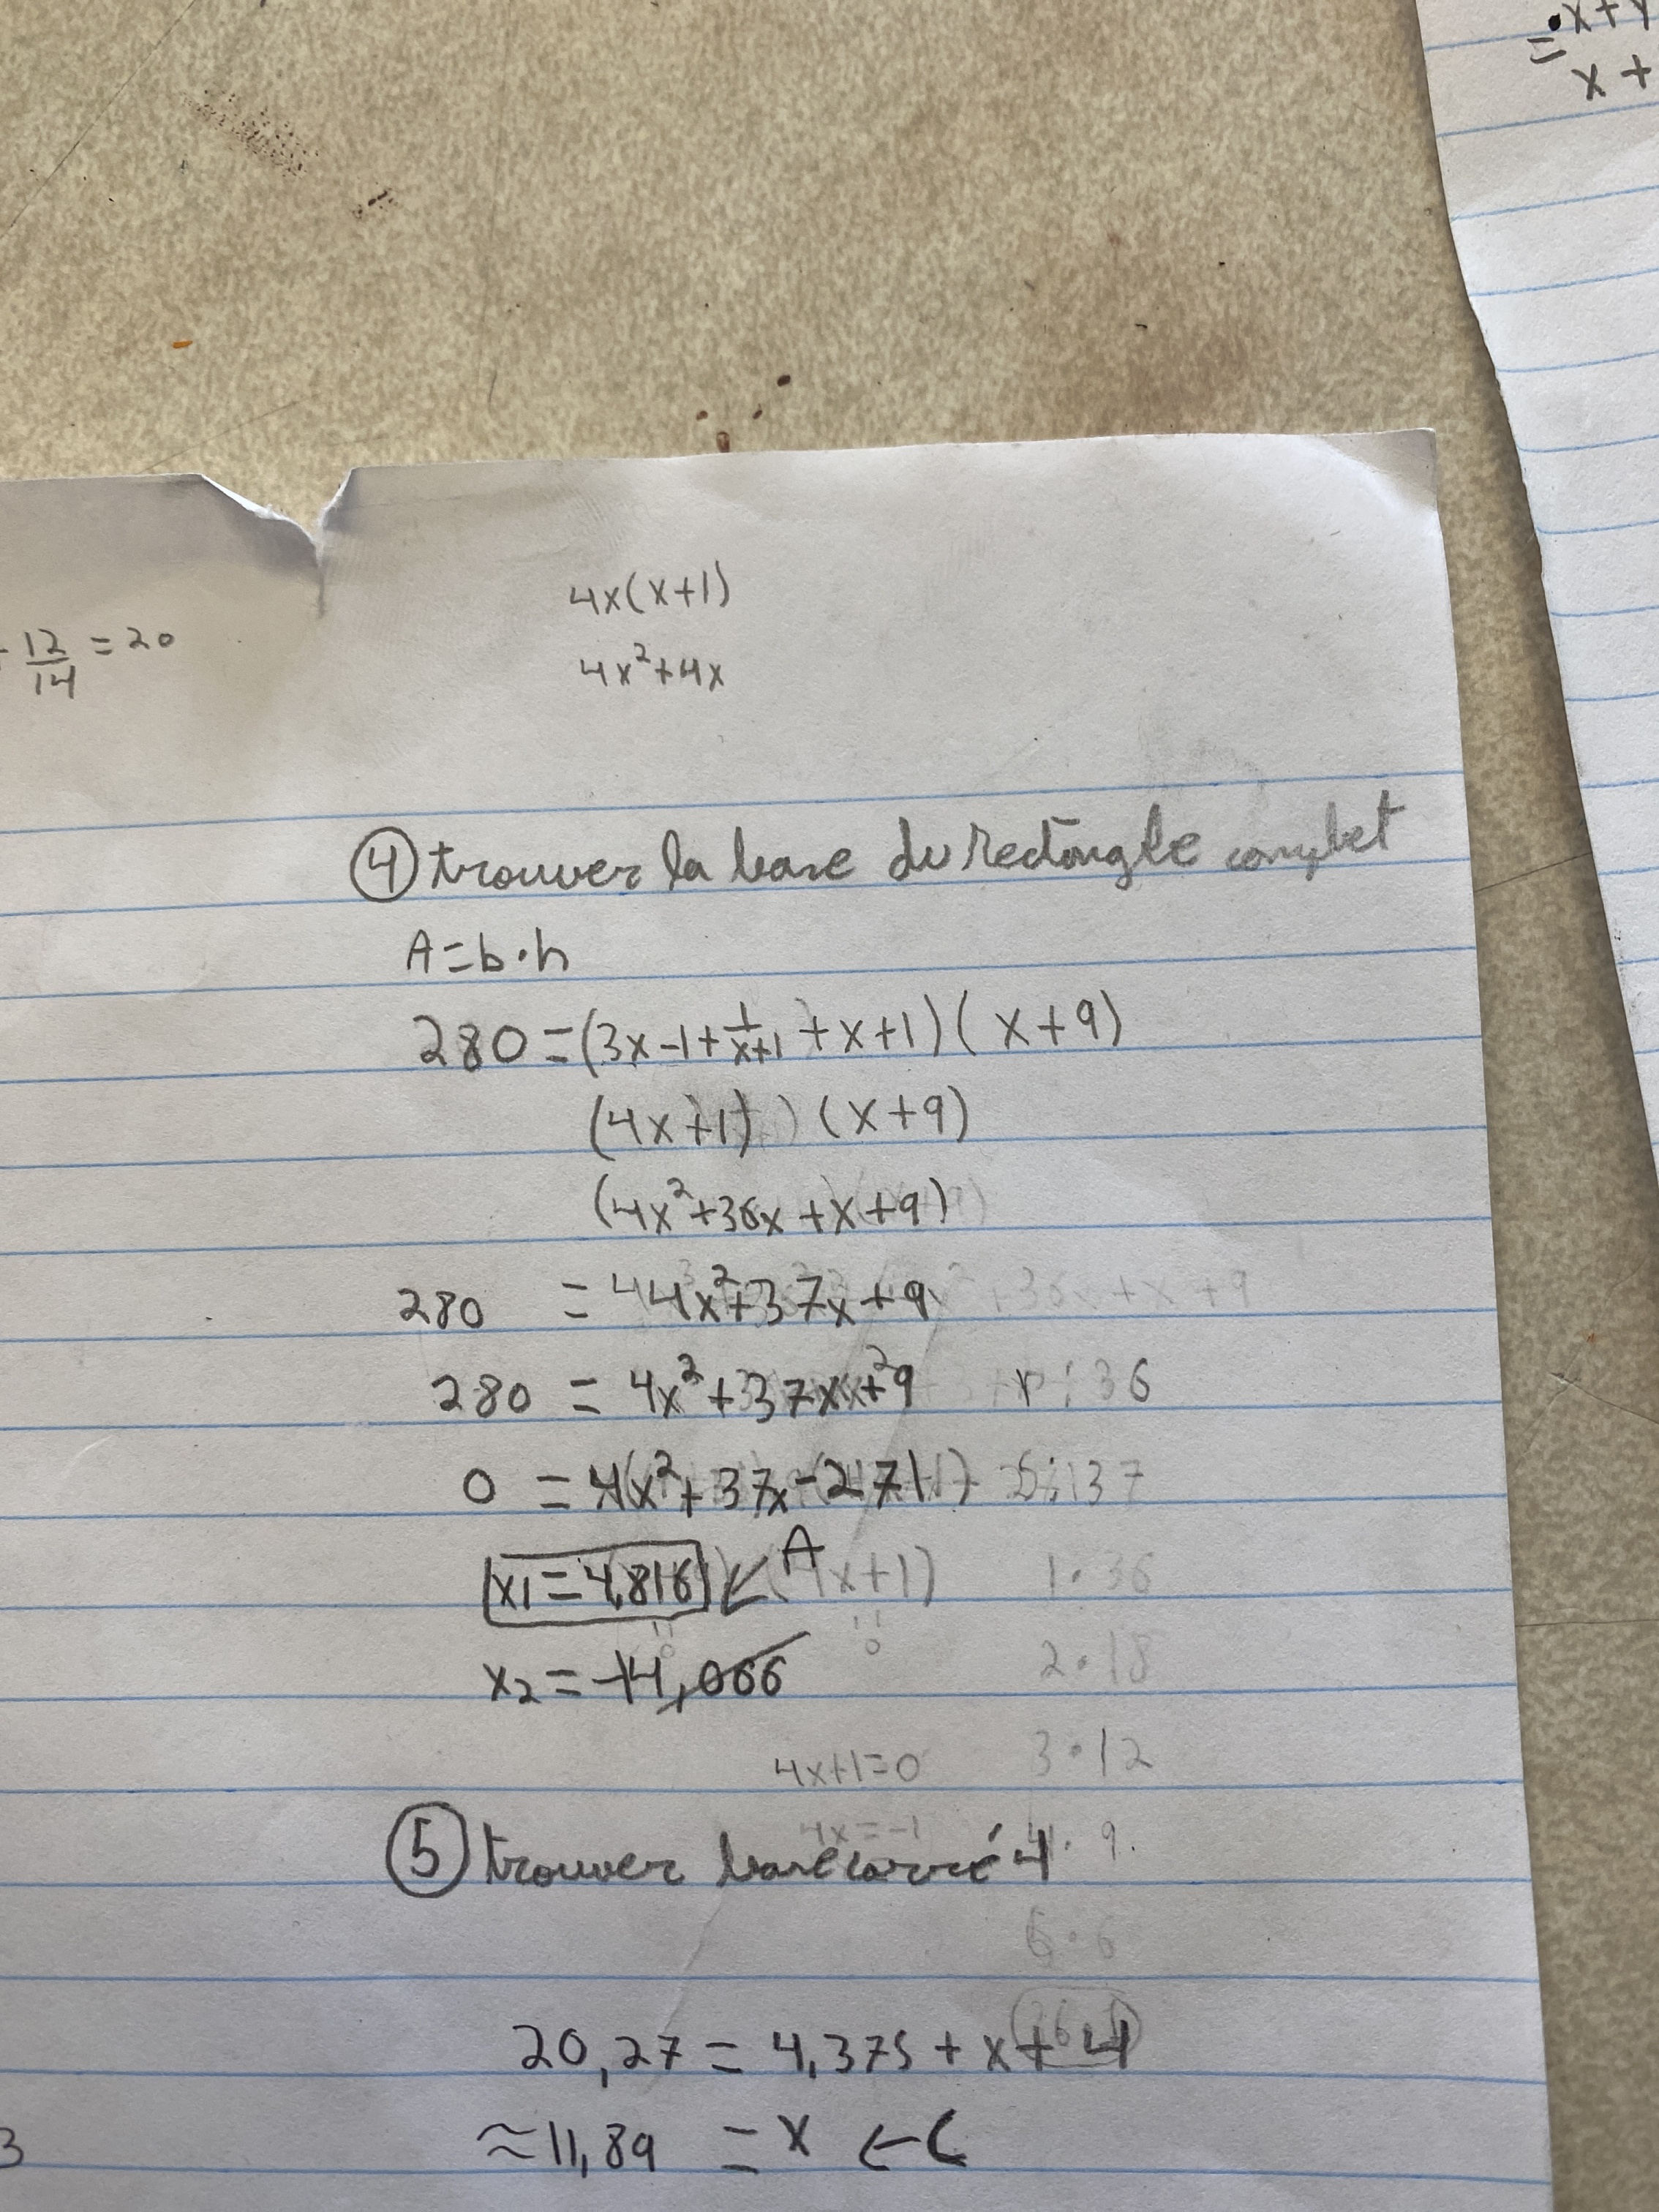 x+
x+
12/14 = 20
4x(x+1)
4x²+4x
④ trouver la base du rectangle complet
A=b·h
280=(3x-1+1/x+1+x+1)(x+9)
(4x+1)(x+9)
(4x²+36x+x+9)
280 = 4x²+37x+9
280 = 4x²+37x+9
r:36
0 = 4x²+37x-271
S:37
x1=4,816 ← A
(4x+1)
1·36
0
x2=-14,066
2·18
4x+1=0
3·12
4x=-1
4·9
⑤ trouver base carré 4
6·6
20,27 = 4,375 + x + 4
≈11,89 = x ← C
3